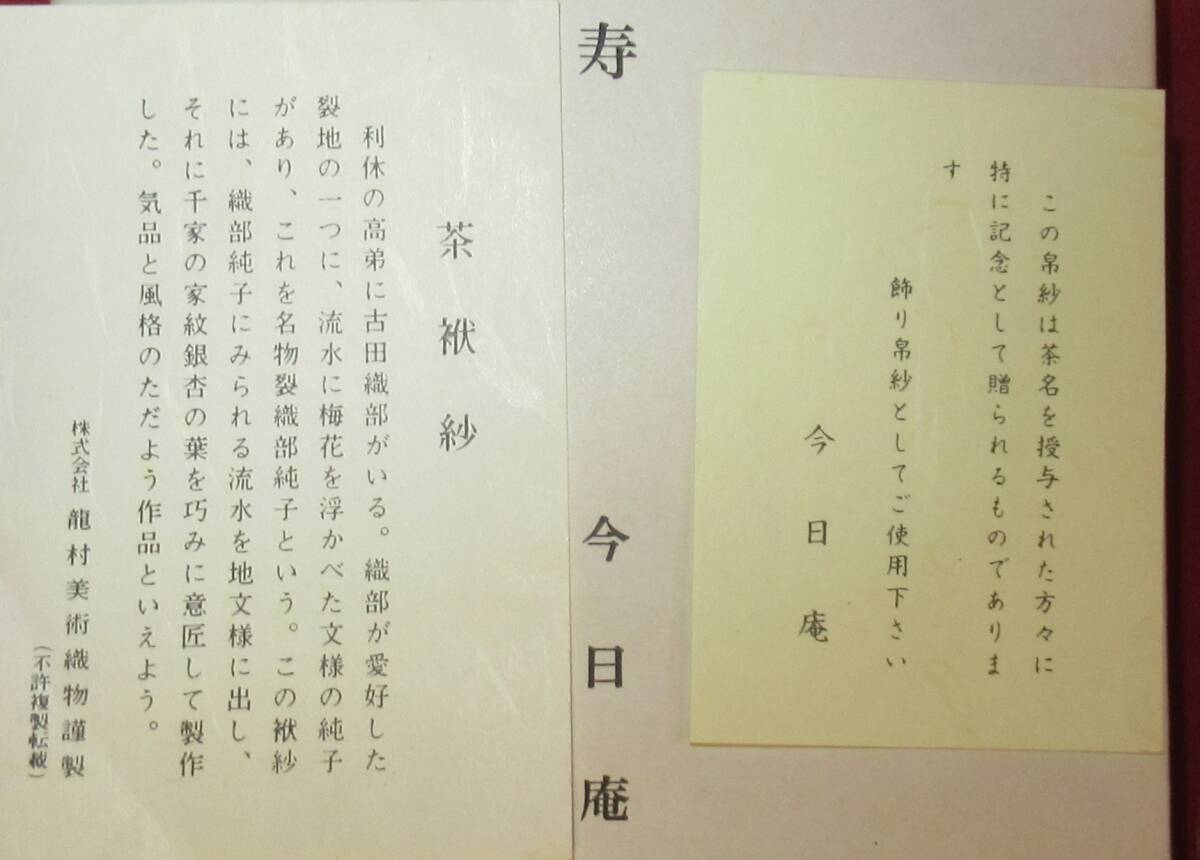 この帛紗は茶名を授与された方々に
特に記念として贈られるものでありま
す
飾り帛紗としてご使用下さい
今日庵
寿 今日庵
茶袱紗
利休の高弟に古田織部がいる。織部が愛好した
裂地の一つに、流水に梅花を浮かべた文様の純子
があり、これを名物裂織部純子という。この袱紗
には、織部純子にみられる流水を地文様に出し、
それに千家の家紋銀杏の葉を巧みに意匠して製作
した。気品と風格のただよう作品といえよう。
株式会社 龍村美術織物謹製
（不許複製転載）